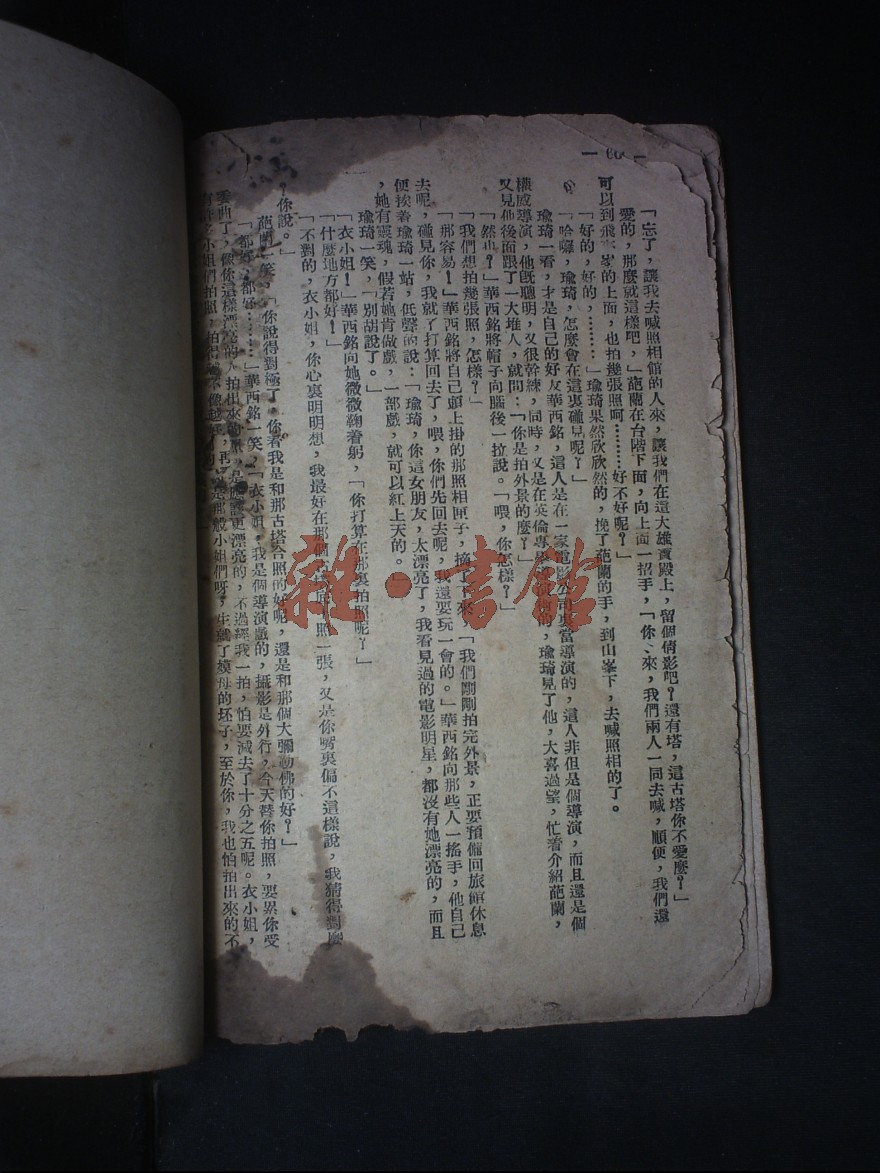 「忘了，讓我去喊照相館的人來，讓我們在這大雄寶殿上，留個倩影吧？還有塔，這古塔你不愛麼？」
愛的，那麼就這樣吧，」葩蘭在台階下面，向上面一招手，「你、來，我們兩人一同去喊，順便，我們還
可以到飛來家的上面，也拍幾張照呵………好不好呢？」
「好的，好的，………」瑜琦果然欣欣然的，挽了葩蘭的手，到山峯下，去喊照相的了。
「哈囉，瑜琦，怎麼會在這裏碰見呢？」
瑜琦一看，才是自己的好友華西銘，這人是在一家電影公司裏當導演的，這人非但是個導演，而且還是個
權威導演，他既聰明，又很幹練，同時，又是在英倫專學導演的，瑜琦見了他，大喜過望，忙着介紹葩蘭，
又見他後面跟了一大堆人，就問：「你是拍外景的麼？」
「然也？」華西銘將帽子向腦後一拉說。「喂，你怎樣？」
「我們想拍幾張照，怎樣？」
「那容易！」華西銘將自己頭上掛的那照相匣子，摘下來，「我們剛剛拍完外景，正要預備回旅館休息
去呢，碰見你，我就了打算回去了，喂，你們先回去呢，我還要玩一會的。」華西銘向那些人一搖手，他自己
便挨着瑜琦一站，低聲的說：「瑜琦，你這女朋友，太漂亮了，我看見過的電影明星，都沒有她漂亮的，而且
，她有靈魂，假若她肯做戲，一部戲，就可以紅上天的。」
瑜琦一笑，「別胡說了。」
「衣小姐！」華西銘向她微微鞠着躬，「你打算在那裏拍照呢？」
「什麼地方都好！」
「不對的，衣小姐，你心裏明明想，我最好在那個塔底下照一張，又是你嘴裏偏不這樣說，我猜得對麼
？你說。」
葩蘭一笑，「你說得對極了，你看我是和那古塔合照的好呢，還是和那個大彌勒佛的好？」
「都好，都好………」華西銘一笑，「衣小姐，我是個導演戲的，攝影是外行，今天替你拍照，要累你受
委曲了，像你這樣漂亮的人，拍出來的照，是應該更漂亮的，不過經我一拍，怕要減去了十分之五呢。衣小姐，
有許多小姐們拍照，拍得不像起來，再是那般小姐們呀，生就了嫫母的坯子，至於你，我也怕拍出來的不
— 60 —
雜·書館